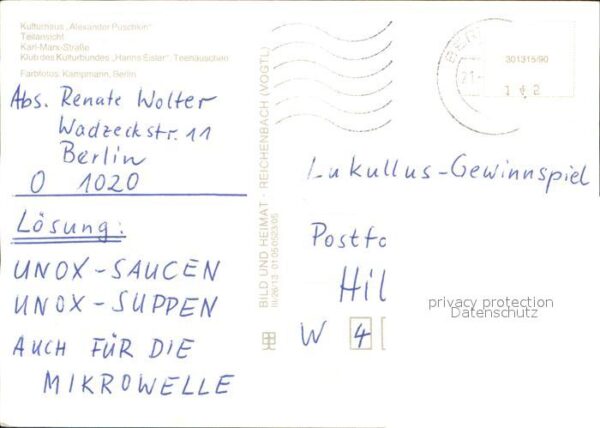 Kulturhaus „Alexander Puschkin"
Teilansicht
Karl-Marx-Straße
Klub des Kulturbundes „Hanns Eisler", Teehäuschen
Farbfotos: Kampmann, Berlin
Abs. Renate Wolter
Wadzeckstr. 11
Berlin
O 1020
Lösung:
UNOX-SAUCEN
UNOX-SUPPEN
AUCH FÜR DIE
MIKROWELLE
BILD UND HEIMAT · REICHENBACH (VOGTL)
III/26/13 01 05 0523/05
301315/90
Lukullus-Gewinnspiel
Postfa
Hil
W 4
privacy protection
Datenschutz